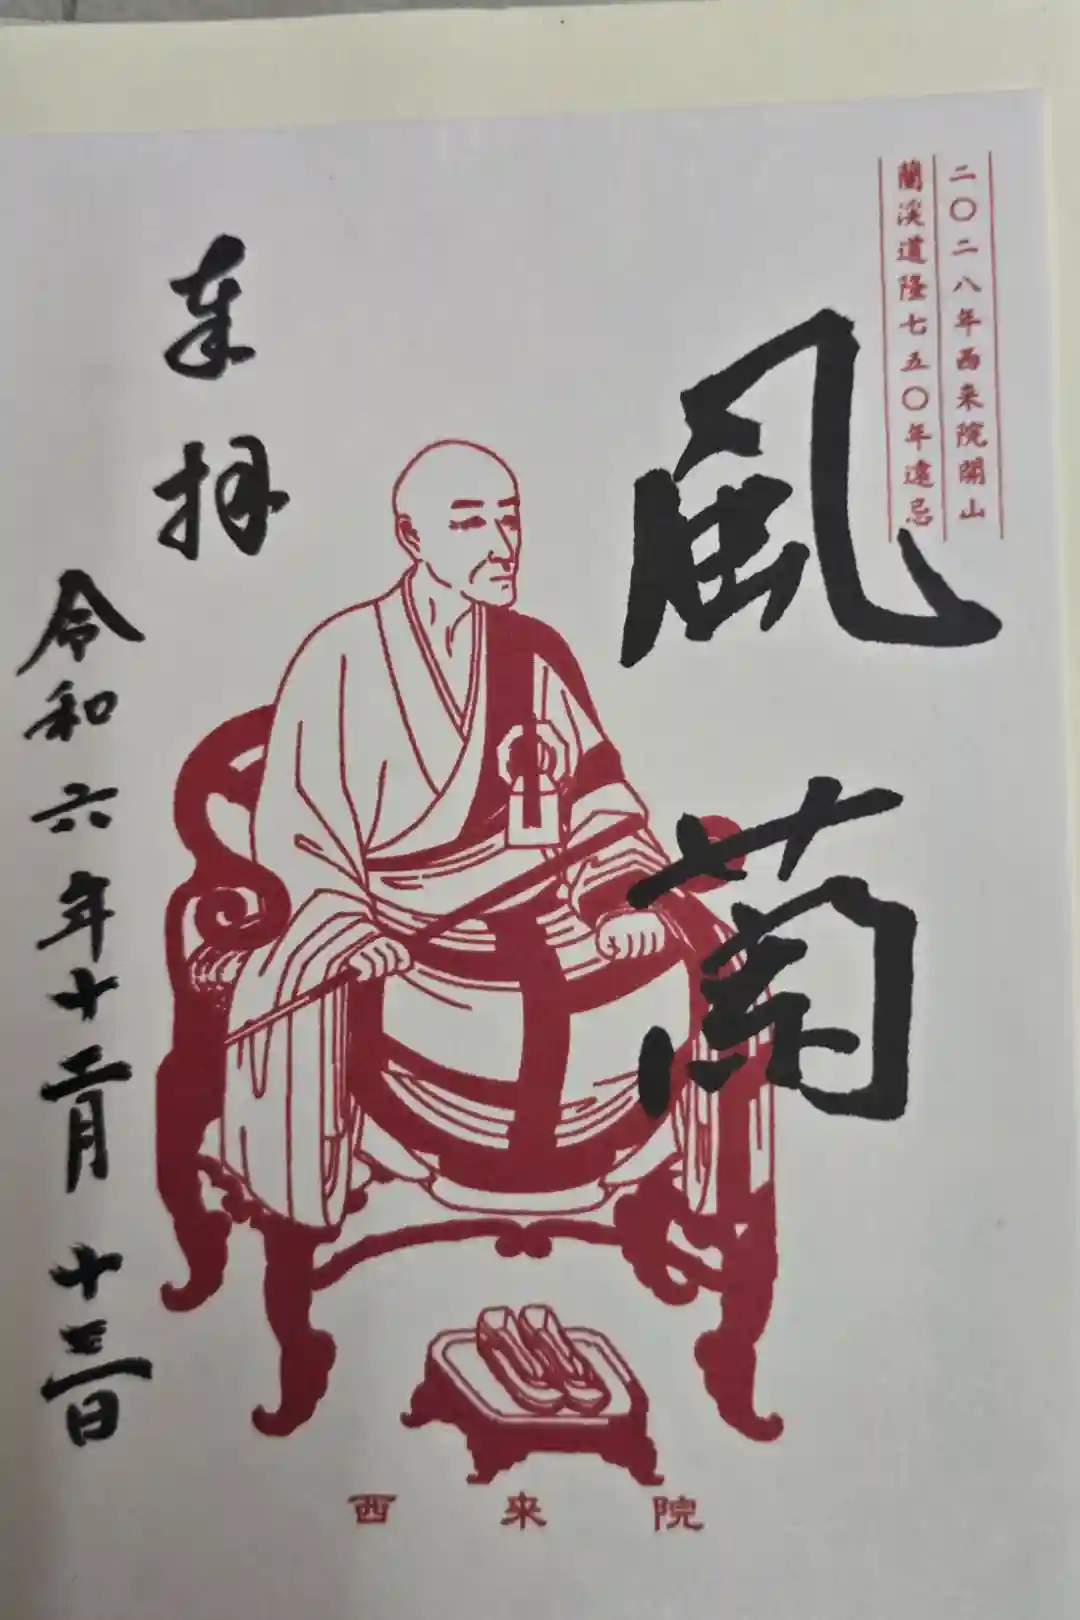 二〇二八年西来院開山
蘭溪道隆七五〇年遠忌
風蘭
奉拝
令和六年十二月十三日
西来院